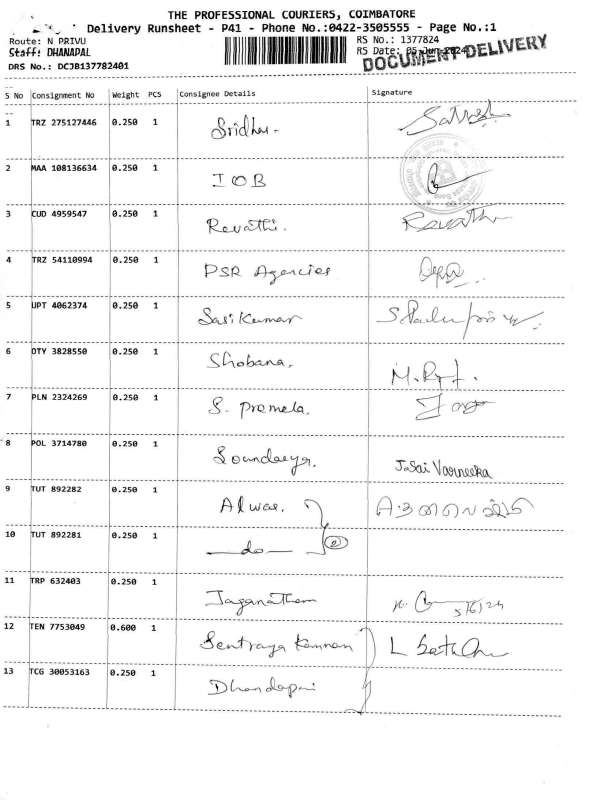 THE PROFESSIONAL COURIERS, COIMBATORE
Delivery Runsheet - P41 - Phone No.:0422-3505555 - Page No.:1
Route: N PRIVU RS No.: 1377824
Staff: DHANAPAL RS Date: 05-Jun-2024
DOCUMENT DELIVERY
DRS No.: DCJB137782401
S No Consignment No Weight PCS Consignee Details Signature
1 TRZ 275127446 0.250 1 Sridhar. Sathish
2 MAA 108136634 0.250 1 IOB
3 CUD 4959547 0.250 1 Revathi. Revathi
4 TRZ 54110994 0.250 1 PSR Agencies
5 UPT 4062374 0.250 1 Sasikumar
6 OTY 3828550 0.250 1 Shobana.
7 PLN 2324269 0.250 1 S. Premela.
8 POL 3714780 0.250 1 Soundarya. J.Sai Varneeka
9 TUT 892282 0.250 1 Alwar.
10 TUT 892281 0.250 1 —do— 2
11 TRP 632403 0.250 1 Jaganathan 5/6/24
12 TEN 7753049 0.600 1 Sentraya Kannan
13 TCG 30053163 0.250 1 Dhandapani